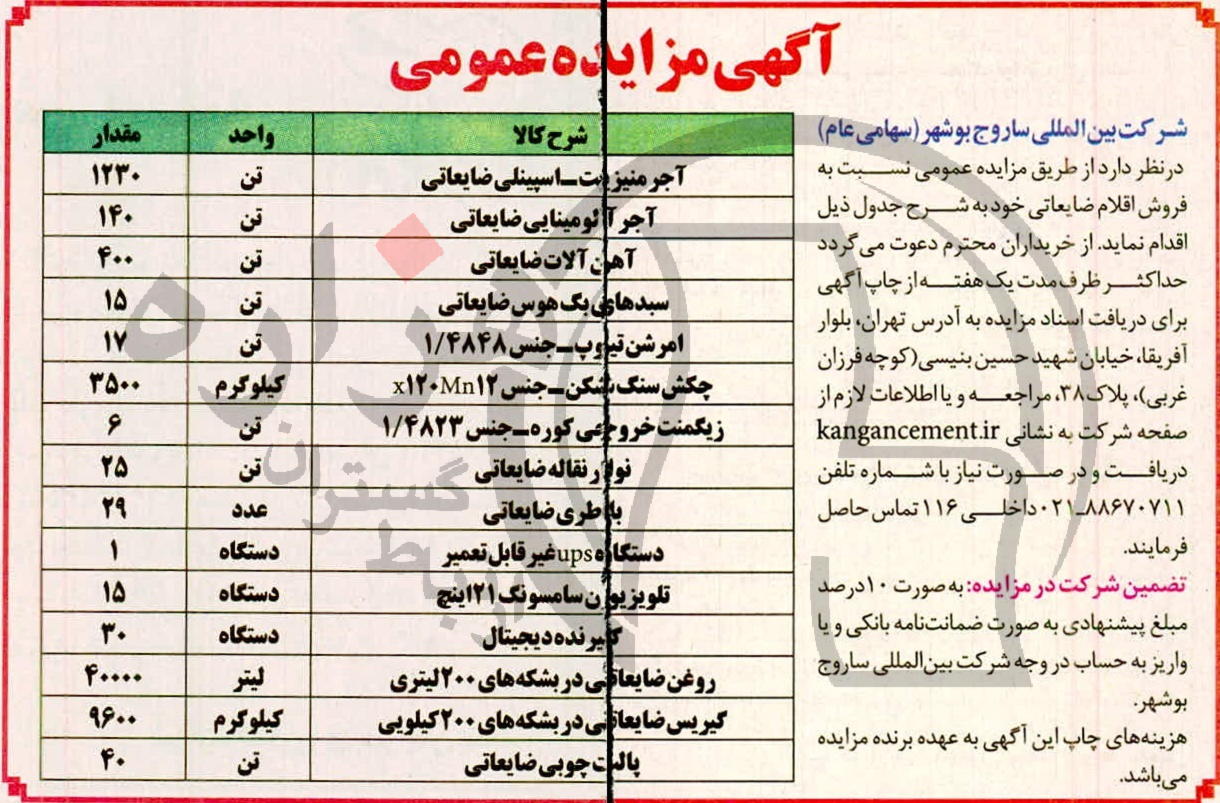 آگهی مزایده عمومی
شرکت بین‌المللی ساروج بوشهر (سهامی عام)
درنظر دارد از طریق مزایده عمومی نسبت به
فروش اقلام ضایعاتی خود به شرح جدول ذیل
اقدام نماید. از خریداران محترم دعوت می گردد
حداکثر ظرف مدت یک هفته از چاپ آگهی
برای دریافت اسناد مزایده به آدرس تهران، بلوار
آفریقا، خیابان شهید حسین بنیسی (کوچه فرزان
غربی)، پلاک ۳۸، مراجعه و یا اطلاعات لازم از
صفحه شرکت به نشانی kangancement.ir
دریافت و در صورت نیاز با شماره تلفن
۰۲۱-۸۸۶۷۰۷۱۱ داخلی ۱۱۶ تماس حاصل
فرمایند.
تضمین شرکت در مزایده: به صورت ۱۰ درصد
مبلغ پیشنهادی به صورت ضمانت‌نامه بانکی و یا
واریز به حساب در وجه شرکت بین‌المللی ساروج
بوشهر.
هزینه‌های چاپ این آگهی به عهده برنده مزایده
می‌باشد.
شرح کالا واحد مقدار
آجر منیزیت-اسپینلی ضایعاتی تن ۱۲۳۰
آجر آلومینایی ضایعاتی تن ۱۴۰
آهن آلات ضایعاتی تن ۴۰۰
سبدهای بگ هوس ضایعاتی تن ۱۵
امرشن تیوپ-جنس ۱/۴۸۴۸ تن ۱۷
چکش سنگ شکن-جنس x۱۲۰Mn۱۲ کیلوگرم ۳۵۰۰
زیگمنت خروجی کوره-جنس ۱/۴۸۲۳ تن ۶
نوار نقاله ضایعاتی تن ۲۵
باطری ضایعاتی عدد ۲۹
دستگاه ups غیر قابل تعمیر دستگاه ۱
تلویزیون سامسونگ ۲۱ اینچ دستگاه ۱۵
گیرنده دیجیتال دستگاه ۳۰
روغن ضایعاتی در بشکه‌های ۲۰۰ لیتری لیتر ۴۰۰۰۰
گیریس ضایعاتی در بشکه‌های ۲۰۰ کیلویی کیلوگرم ۹۶۰۰
پالت چوبی ضایعاتی تن ۴۰
هزاره
گستران
ارتباط